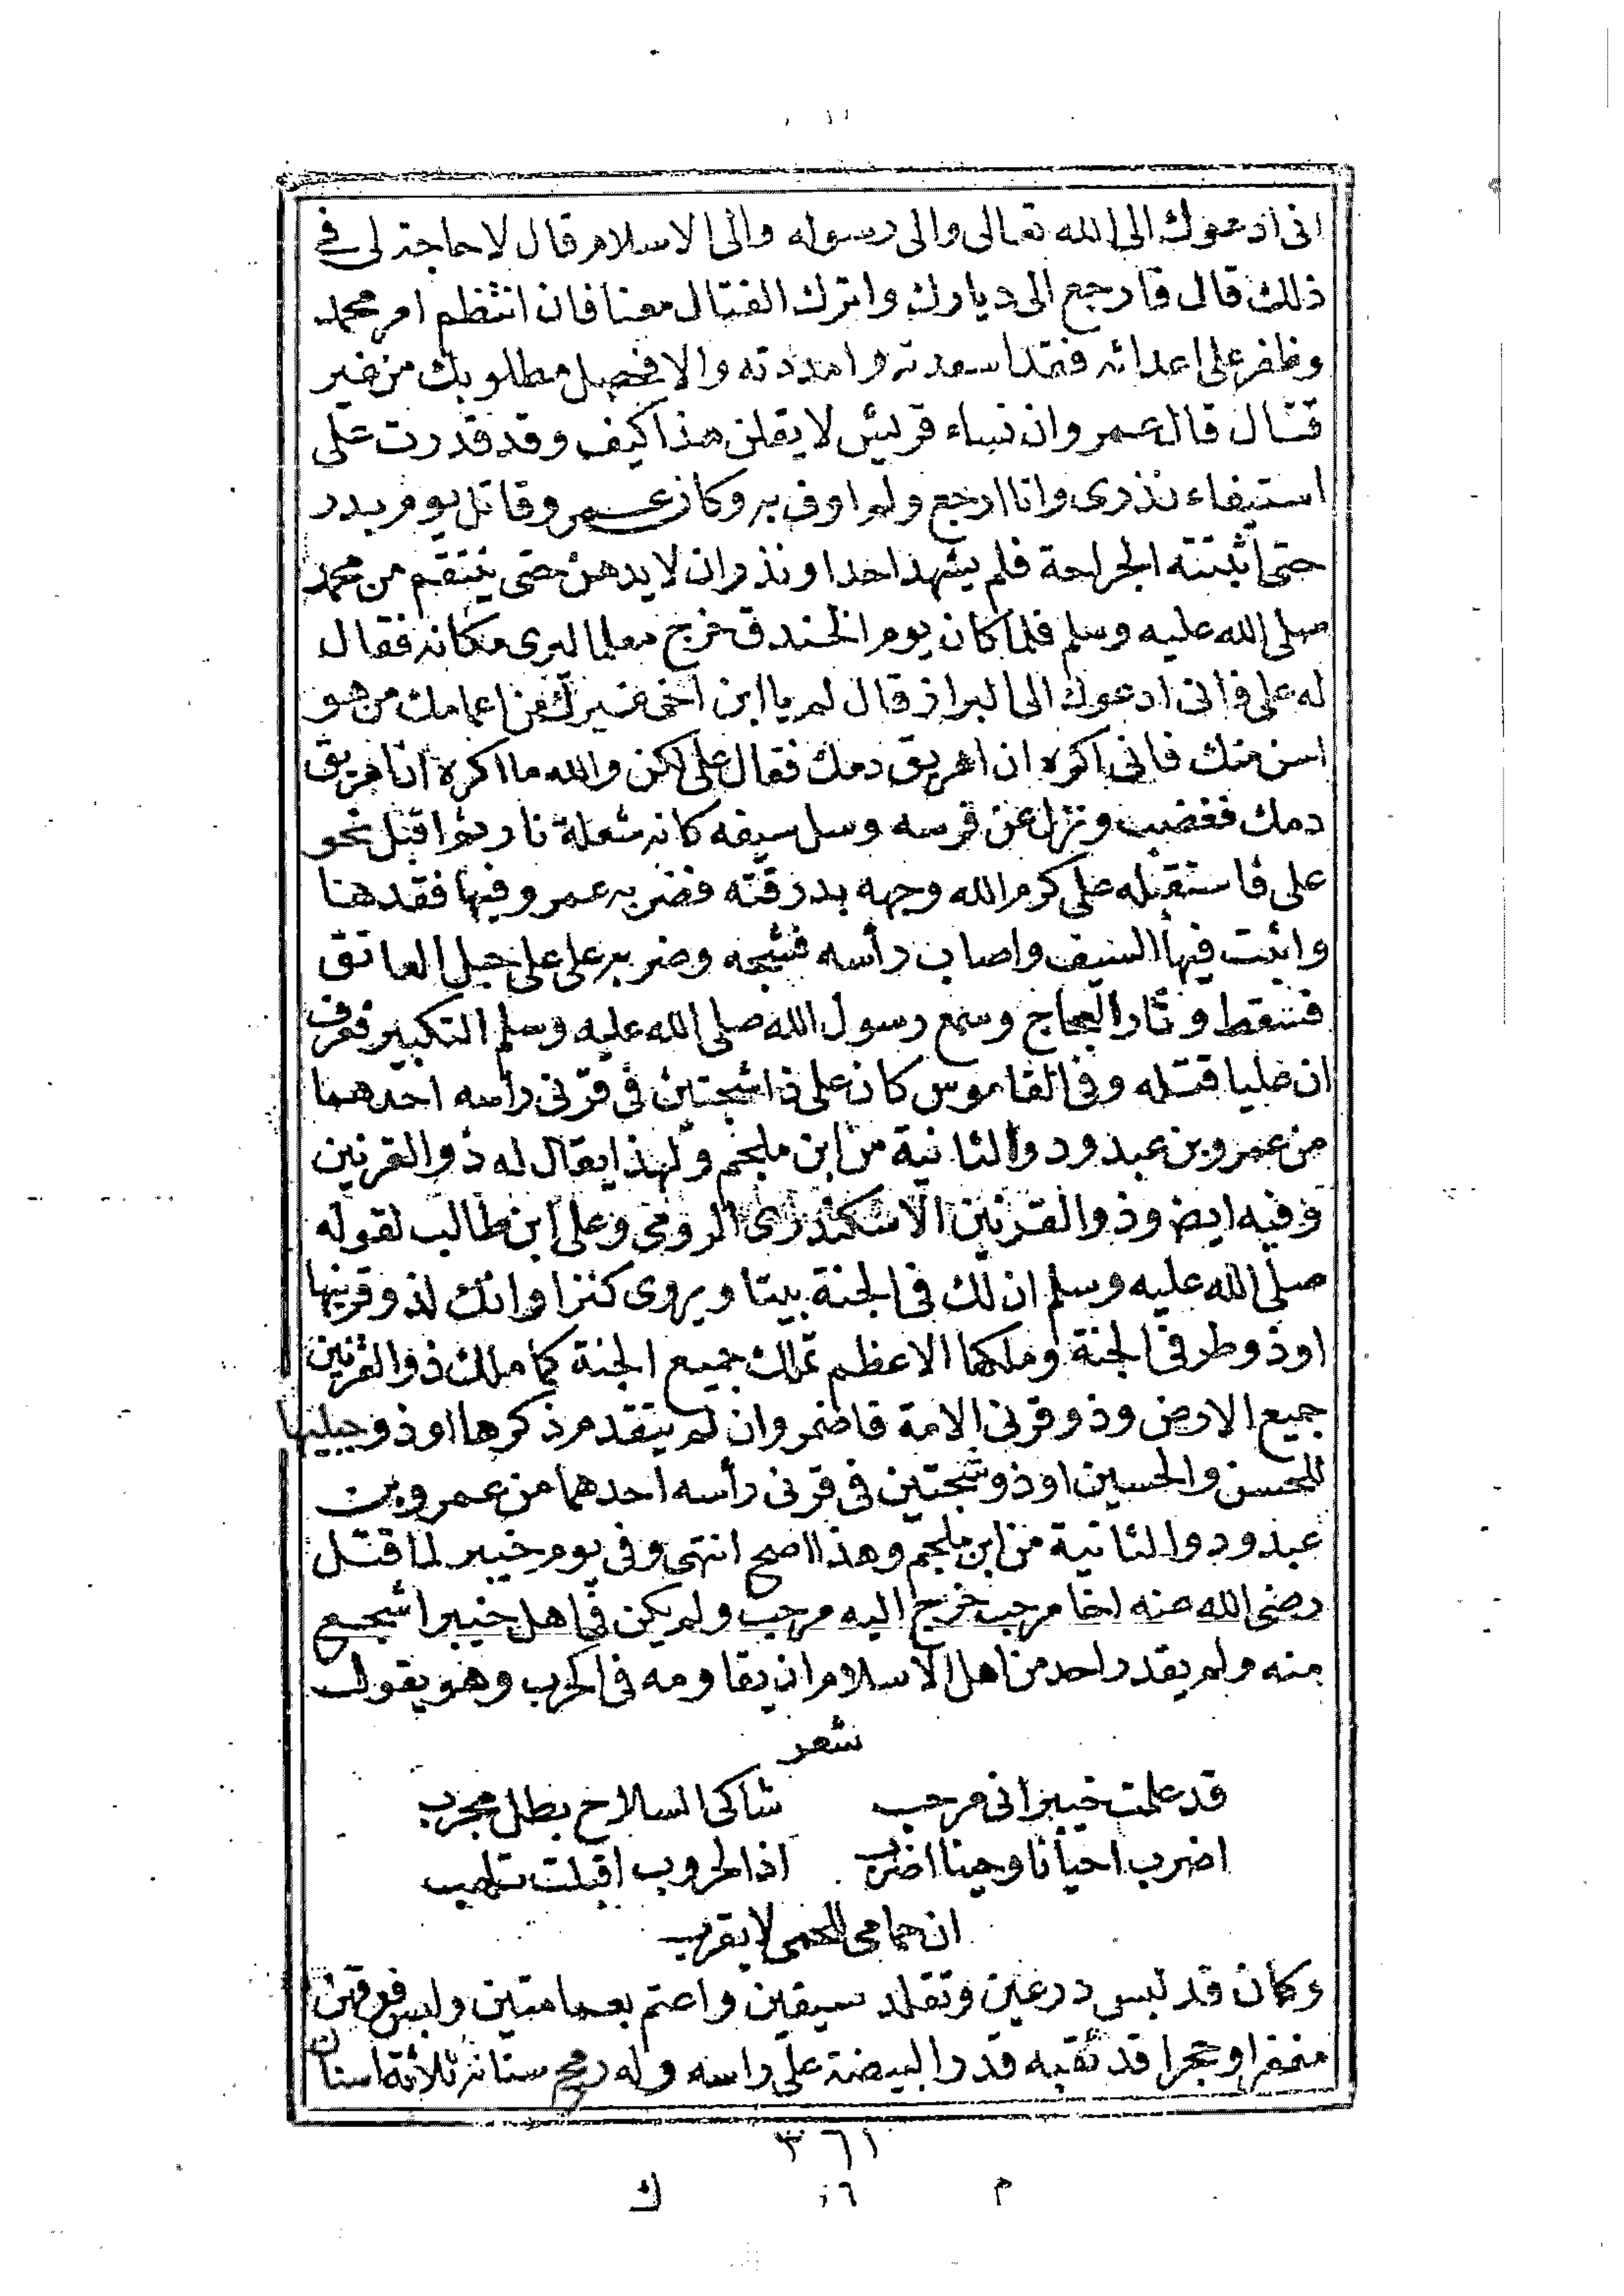 انى ادعوك الى الله تعالى والى رسوله والى الاسلام قال لا حاجة لى فى
ذلك قال فارجع الى ديارك واترك القتال معنا فان انتظم امر محمد
وظفر على اعدائه فقد اسعدته وامددته والا فحصل مطلوبك من غير
قتال قال عمر وان نساء قريش لا يقلن هذا كيف وقد قدرت على
استيفاء نذرى وانا ارجع ولم اوف به وكان عمرو قاتل يوم بدر
حتى اثبتته الجراحة فلم يشهد احدا ونذر ان لا يدهن حتى ينتقم من محمد
صلى الله عليه وسلم فلما كان يوم الخندق خرج معلما ليرى مكانه فقال
له على فانى ادعوك الى البراز قال لم يا ابن اخى غيرك من اعمامك من هو
اسن منك فانى اكره ان اهريق دمك فقال على لكن والله ما اكره ان اهريق
دمك فغضب ونزل عن فرسه وسل سيفه كانه شعلة نار ثم اقبل نحو
على فاستقبله على كرم الله وجهه بدرقته فضربه عمرو فيها فقدها
واثبت فيها السيف واصاب رأسه فشجه وضربه على على حبل العاتق
فسقط وثار العجاج وسمع رسول الله صلى الله عليه وسلم التكبير فعرف
ان عليا قتله وفى القاموس كان على ذا شجتين فى قرنى رأسه احدهما
من عمرو بن عبدود والثانية من ابن ملجم ولهذا يقال له ذو القرنين
وفيه ايض وذو القرنين الاسكندرى الرومى وعلى ابن طالب لقوله
صلى الله عليه وسلم ان لك فى الجنة بيتا ويروى كنزا وانك لذو قرنيها
اوذو طرفى الجنة وملكها الاعظم تملك جميع الجنة كما ملك ذو القرنين
جميع الارض وذو قرنى الامة فاضمر وان لم يتقدم ذكرها اوذو جبليها
للحسن والحسين اوذو شجتين فى قرنى رأسه احدهما من عمرو بن
عبدود والثانية من ابن ملجم وهذا اصح انتهى وفى يوم خيبر لما قتل
رضى الله عنه اخا مرحب خرج اليه مرحب ولم يكن فى اهل خيبر اشجع
منه ولم يقدر احد من اهل الاسلام ان يقاومه فى الحرب وهو يقول
شعر
قد علمت خيبر انى مرحب شاكى السلاح بطل مجرب
اضرب احيانا وحينا اضرب اذا الحروب اقبلت تلهب
ان حمامى للحمى لا يقرب
وكان قد لبس درعين وتقلد سيفين واعتم بعمامتين ولبس فوقهن
مغفرا وحجرا قد ثقبه قدر البيضة على راسه وله رمح سنانه ثلاثة اسنان
٣٦١
م ٤٦ ك